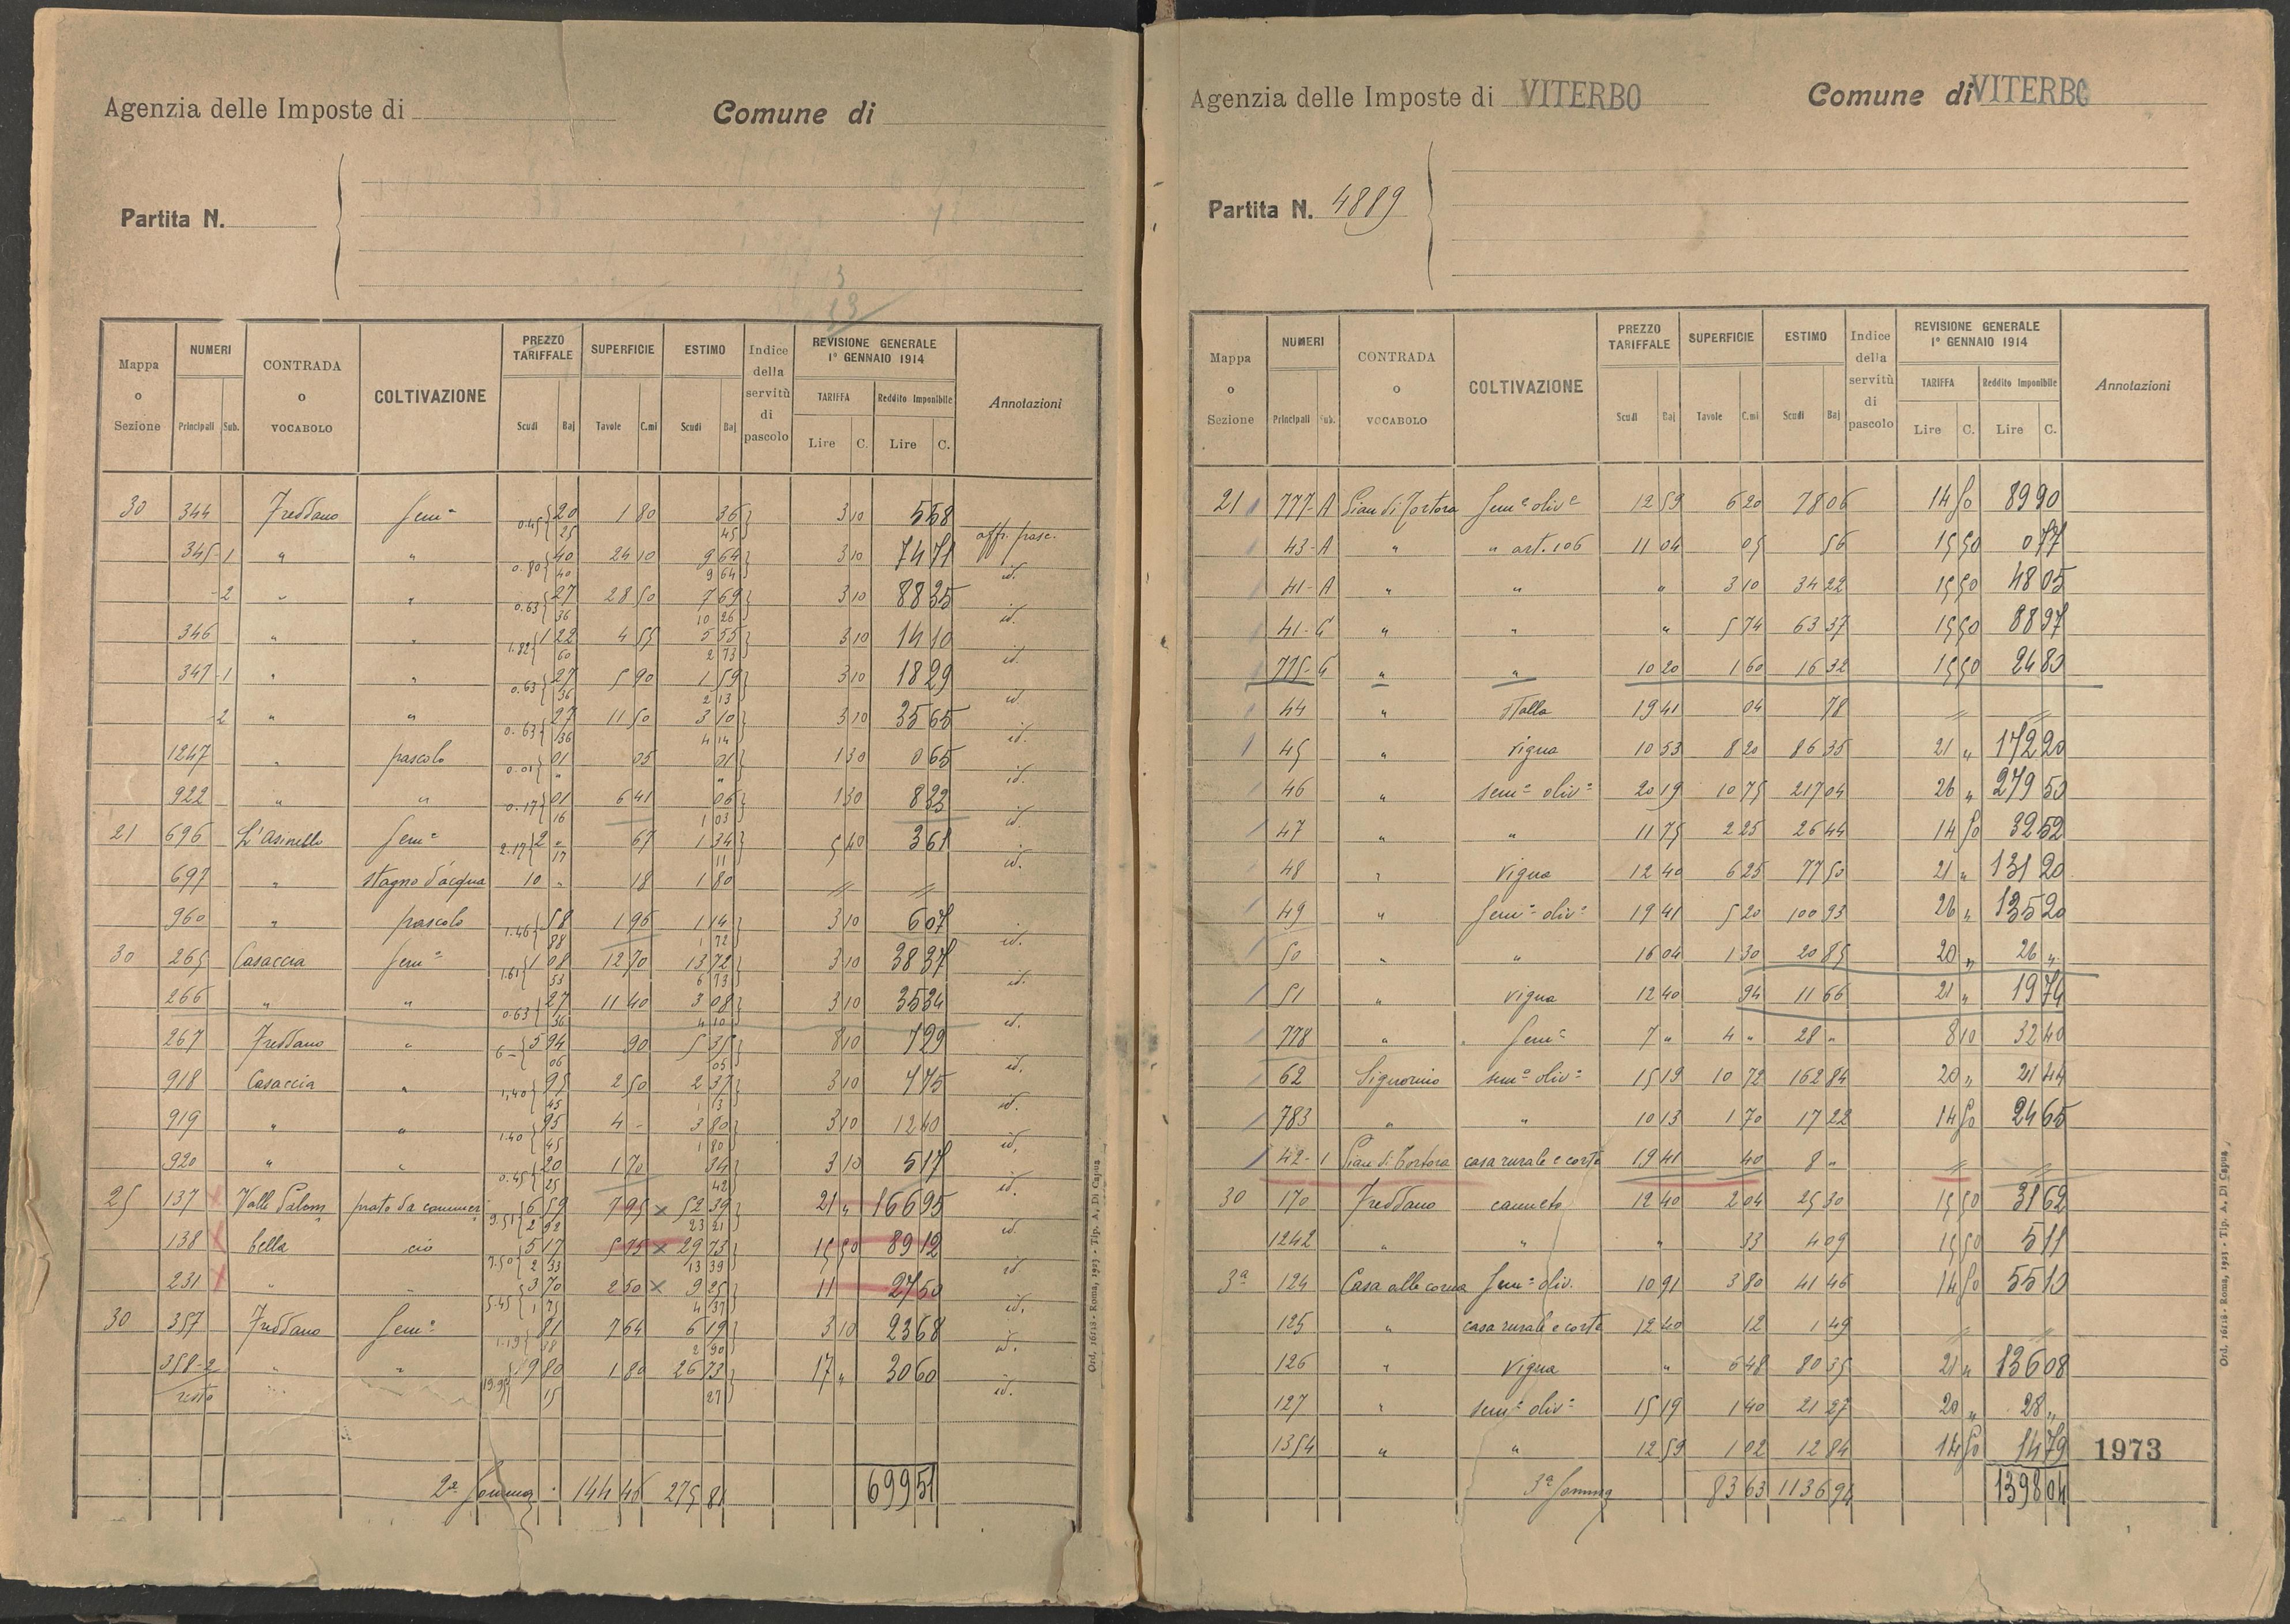 Agenzia delle Imposte di
Comune di
Partita N.
3
13
Mappa o Sezione | NUMERI Principali Sub. | CONTRADA o VOCABOLO | COLTIVAZIONE | PREZZO TARIFFALE Scudi Baj | SUPERFICIE Tavole C.mi | ESTIMO Scudi Baj | Indice della servitù di pascolo | REVISIONE GENERALE 1° GENNAIO 1914 TARIFFA Lire C. Reddito Imponibile Lire C. | Annotazioni
30 344 Freddano Sem.e 0.45 { 20 25 1 80 36 45 } 3 10 5 58 aff. pasc.
345-1 " " 0.80 { 40 40 24 10 9 64 9 64 } 3 10 74 71 id.
-2 " " 0.63 { 27 36 28 50 7 69 10 26 } 3 10 88 35 id.
346 " " 1.82 { 1 22 60 4 55 5 55 2 73 } 3 10 14 10 id.
347-1 " " 0.63 { 27 36 5 90 1 59 2 13 } 3 10 18 29 id.
-2 " " 0.63 { 27 36 11 50 3 10 4 14 } 3 10 35 65 id.
1247 " pascolo 0.01 { 01 " 05 01 " } 1 30 0 65 id.
922 " " 0.17 { 01 16 6 41 06 1 03 } 1 30 8 32 id.
21 696 L'Asinello Sem.e 2.17 { 2 " 17 67 1 34 11 } 5 40 3 61 id.
697 " stagno d'acqua 10 " 18 1 80 = =
960 " pascolo 1.46 { 58 88 1 96 1 14 1 72 } 3 10 6 07 id.
30 265 Casaccia Sem.e 1.61 { 1 08 53 12 70 13 72 6 73 } 3 10 38 37 id.
266 " " 0.63 { 27 36 11 40 3 08 4 10 } 3 10 35 34 id.
267 Freddano " 6 - { 5 94 06 90 5 35 05 } 8 10 7 29 id.
918 Casaccia " 1,40 { 95 45 2 50 2 37 1 13 } 3 10 7 75 id.
919 " " 1.40 { 95 45 4 - 3 80 1 80 } 3 10 12 40 id.
920 " " 0.45 { 20 25 1 70 34 42 } 3 10 5 17 id.
25 137 x Valle Palom prato da commer 9.51 { 6 59 2 92 7 95 x 52 39 23 21 } 21 " 166 95 id.
138 x bella cio 7.50 { 5 17 2 33 5 75 x 29 73 13 39 } 15 50 89 12 id.
231 x " " 5.45 { 3 70 1 75 2 50 x 9 25 4 37 } 11 27 50 id.
30 357 Freddano Sem.e 1.19 { 81 38 7 64 6 19 2 90 } 3 10 23 68 id.
358-2 " " 19.95 { 9 80 15 1 80 26 73 27 } 17 " 30 60 id.
resto
2a Somma 144 46 275 81 699 51
Ord. 16118 - Roma, 1923 - Tip. A. Di Capua
Agenzia delle Imposte di VITERBO
Comune di VITERBO
Partita N. 4889
Mappa o Sezione | NUMERI Principali Sub. | CONTRADA o VOCABOLO | COLTIVAZIONE | PREZZO TARIFFALE Scudi Baj | SUPERFICIE Tavole C.mi | ESTIMO Scudi Baj | Indice della servitù di pascolo | REVISIONE GENERALE 1° GENNAIO 1914 TARIFFA Lire C. Reddito Imponibile Lire C. | Annotazioni
21 777-A Pian di Tortora Sem.e oliv.e 12 59 6 20 78 06 14 50 89 90
43-A " " art. 106 11 04 05 56 15 50 0 77
41-A " " " 3 10 34 22 15 50 48 05
41-C " " " 5 74 63 37 15 50 88 97
775-C " " 10 20 1 60 16 32 15 50 24 80
44 " stalla 19 41 04 78 = =
45 " vigna 10 53 8 20 86 35 21 " 172 20
46 " sem.e oliv.e 20 19 10 75 217 04 26 " 279 50
47 " " 11 75 2 25 26 44 14 50 32 52
48 " vigna 12 40 6 25 77 50 21 " 131 20
49 " Sem.e oliv.e 19 41 5 20 100 93 26 " 135 20
50 " " 16 04 1 30 20 85 20 " 26 "
51 " vigna 12 40 94 11 66 21 " 19 74
778 " Sem.e 7 " 4 " 28 " 8 10 32 40
62 Signorino sem.e oliv.e 15 19 10 72 162 84 20 " 214 4
783 " " 10 13 1 70 17 22 14 50 24 65
42-1 Pian di Tortora casa rurale e corte 19 41 40 8 " = =
30 170 Freddano canneto 12 40 2 04 25 30 15 50 31 62
1242 " " " 33 4 09 15 50 5 11
3a 124 Casa alle corna Sem.e oliv. 10 91 3 80 41 46 14 50 55 10
125 " casa rurale e corte 12 40 12 1 49 = =
126 " vigna " 6 48 80 35 21 " 136 08
127 " sem.e oliv.e 15 19 1 40 21 27 20 " 28 "
1354 " " 12 59 1 02 12 84 14 50 14 79
1973
3a Somma 83 63 1136 94 1398 04
Ord. 16118 - Roma, 1923 - Tip. A. Di Capua